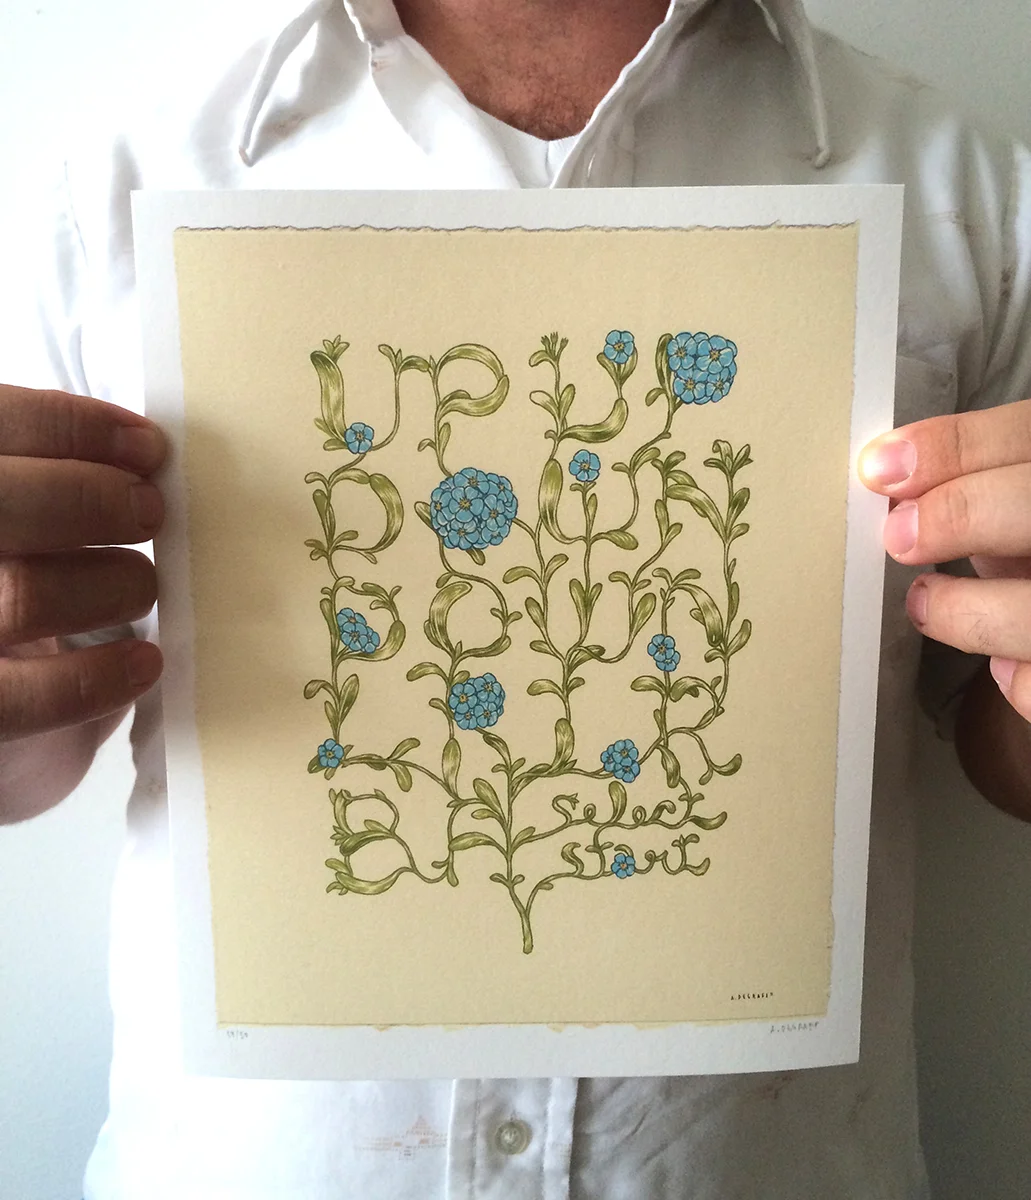 UP UP
DOWN
DOWN
LRLR
BA select
start
A.DEGRAFF
A.DEGRAFF